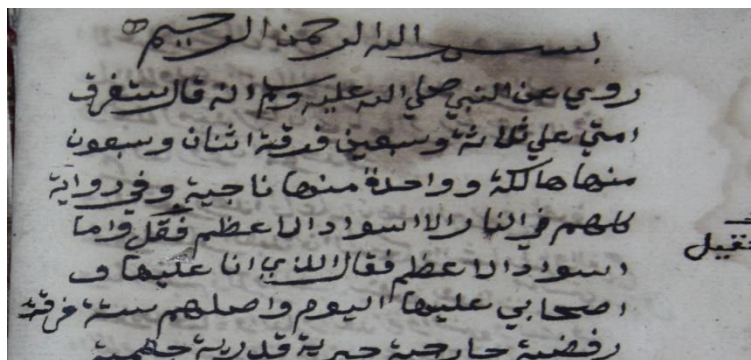 بسم الله الرحمن الرحيم
روي عن النبي صلي الله عليه وسلم انه قال ستفرق
امتي علي ثلاثة وسبعين فرقة اثنان وسبعون
منها هالكة وواحدة منها ناجية وفي رواية
كلهم في النار الا اسواد الاعظم فقل وما
فقيل
اسواد الاعظم فقال الذي انا عليها و
اصحابي عليها اليوم واصلهم ستة فرقة
رفضية خارجية جبرية قدرية جهمية